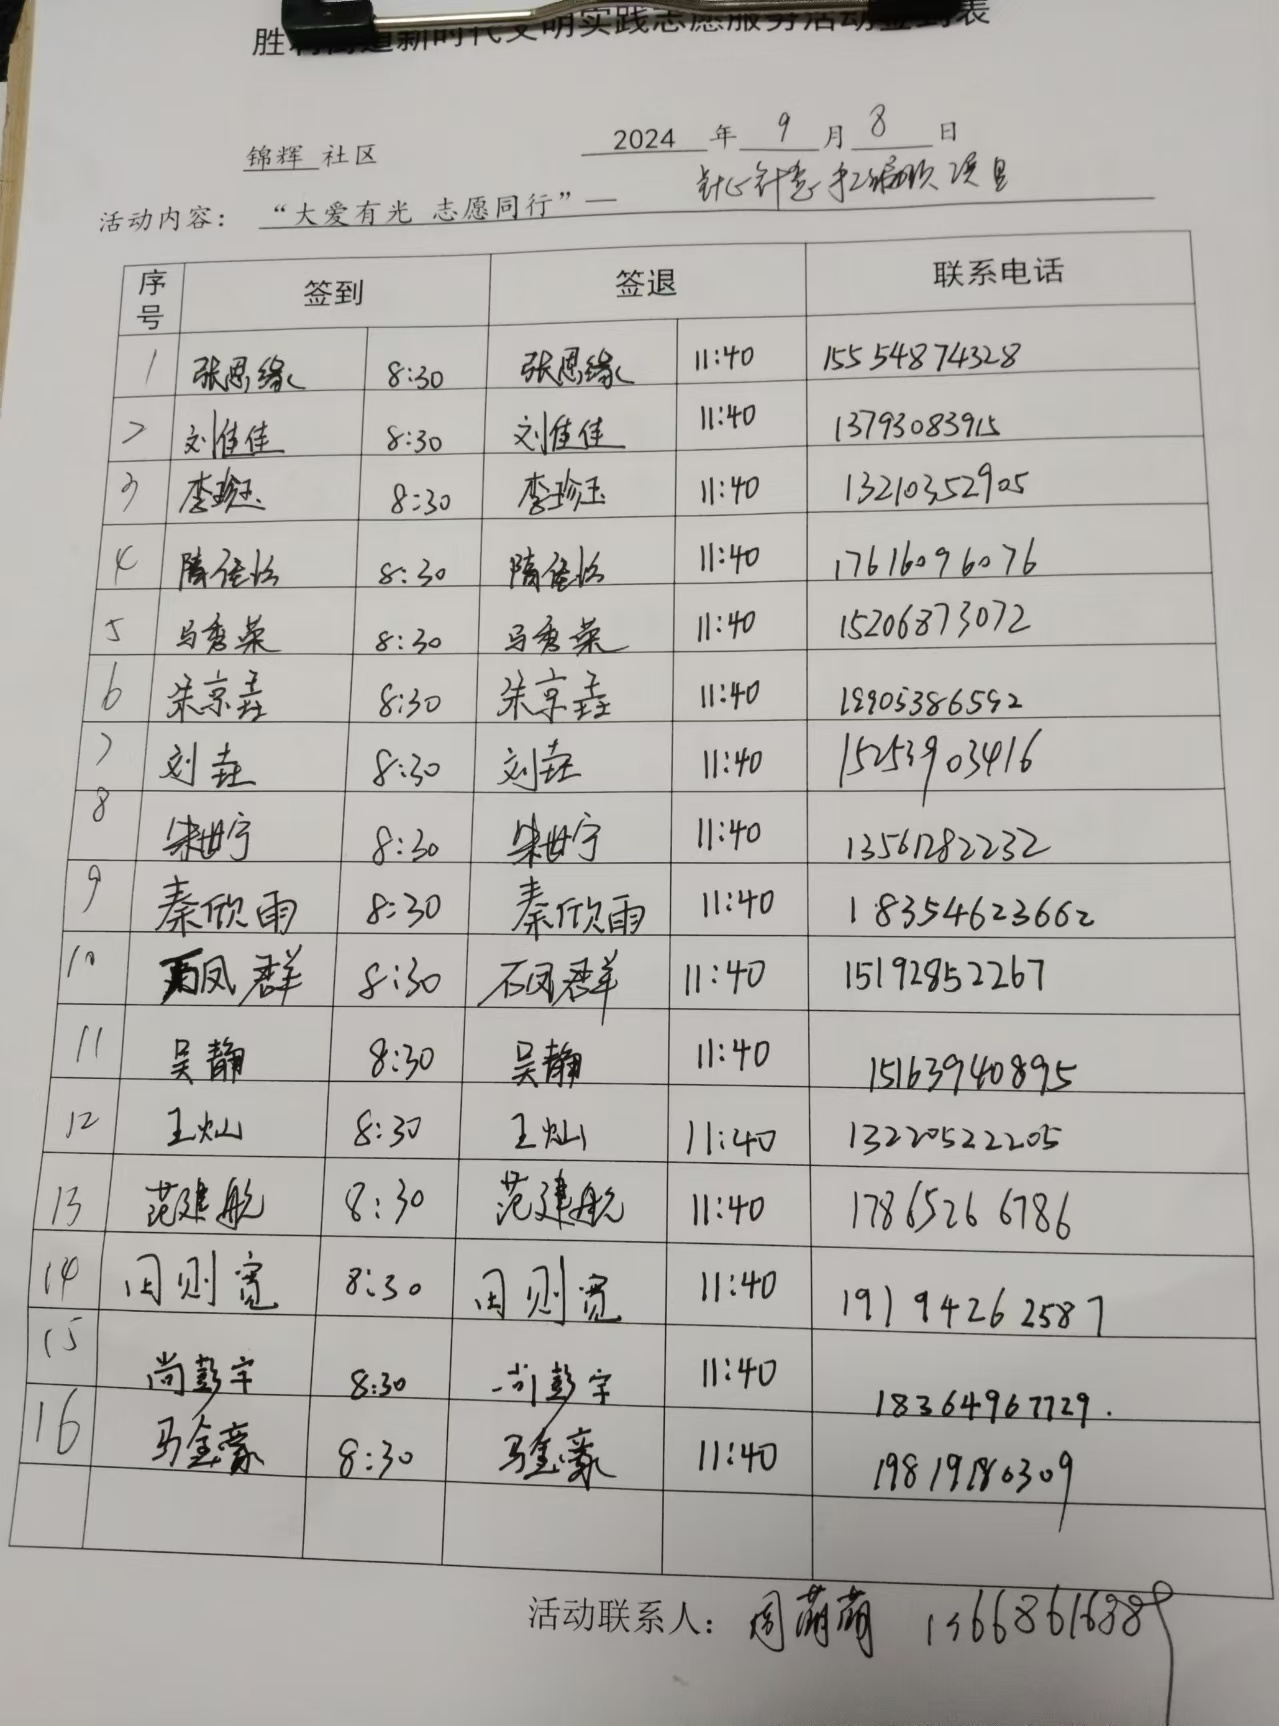 胜利街道新时代文明实践志愿服务活动签到表
锦辉 社区 2024 年 9 月 8 日
活动内容： “大爱有光 志愿同行”—
序号 签到 签退 联系电话
1 张恩缘 8:30 张恩缘 11:40 15554874328
2 刘佳佳 8:30 刘佳佳 11:40 13793083915
3 李珍玉 8:30 李珍玉 11:40 13210352905
4 8:30 11:40 17616096076
5 马秀荣 8:30 马秀荣 11:40 15206873072
6 朱京垚 8:30 朱京垚 11:40
7 刘垚 8:30 刘垚 11:40 15253903416
8 宋世宁 8:30 宋世宁 11:40 13561282232
9 秦欣雨 8:30 秦欣雨 11:40 18354623662
10 石凤群 8:30 石凤群 11:40 15192852267
11 吴静 8:30 吴静 11:40 15163940895
12 王灿 8:30 王灿 11:40 13220522205
13 范建航 8:30 范建航 11:40 17865266786
14 田则宽 8:30 田则宽 11:40 19194262587
15 尚彭宇 8:30 尚彭宇 11:40 18364967729.
16 马金豪 8:30 马金豪 11:40 19819180309
活动联系人： 周萌萌